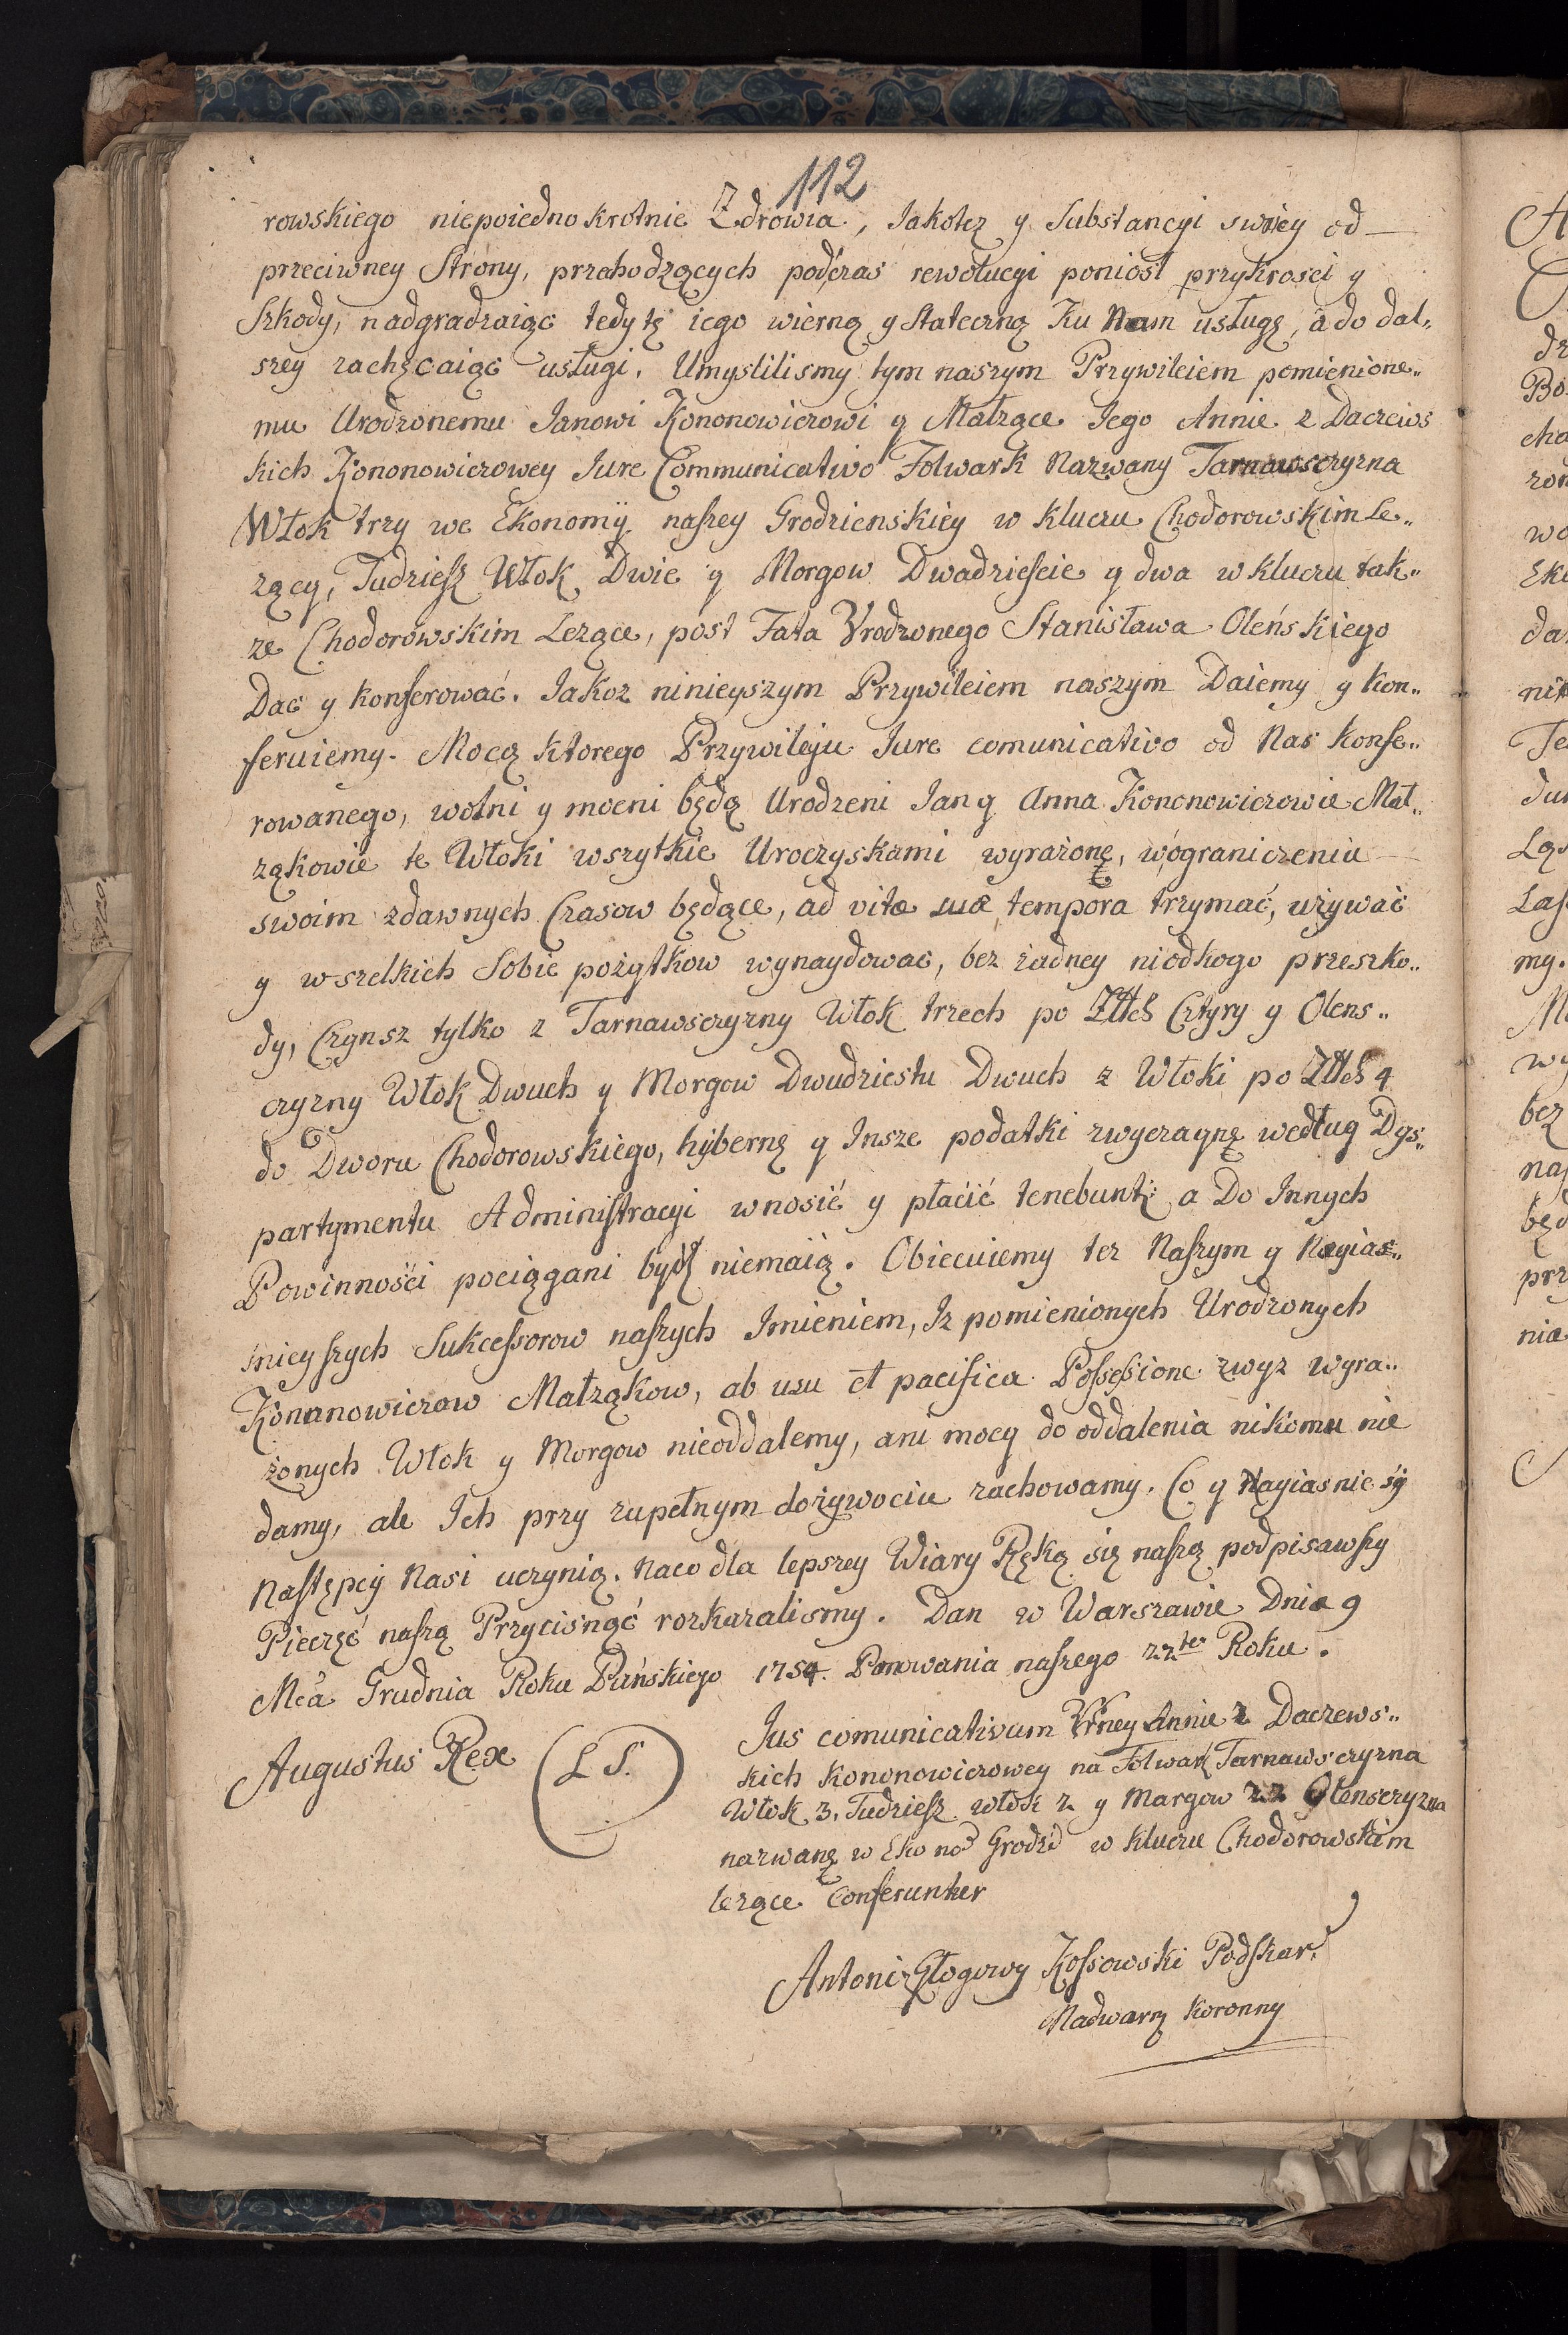 112
rowskiego niepoiednokrotnie Zdrowia, Jakotez y Substancyi swey od
przeciwney Strony, przehodzących podczas rewolucyi poniosł przykrosci y
Szkody, nadgradzaiąc tedy tę iego wierną y Stateczną Ku Nam usługę, a do dal„
szey zachęcaiąc usługi. Umyslilismy tym naszym Przywileiem pomienione„
mu Urodzonemu Janowi Kononowiczowi y Małżące Jego Annie z Daczews
kich Kononowiczowey Jure Communicativo Folwark Nazwany Tarnawsczyzna
Włok trzy we Ekonomÿ naszey Grodzienskiey w Kluczu Chodorowskim Le„
zący, Tudziesz Włok Dwie y Morgow Dwadzieście y dwa w Kluczu tak„
ze Chodorowskim Lezące, post Fata Vrodzonego Stanisława Oleńskiego
Dac y konferować. Jakoz ninieyszym Przywileiem naszym Daiemy y kon„
feruiemy. Mocą ktorego Przywileju Jure comunicativo od Nas konfe„
rowanego, wolni y mocni będą Urodzeni Jan y Anna Kononowiczowie Mał„
ząkowie te Włoki wszytkie Uroczyskami wyrażonę, w ograniczeniu
swoim zdawnych Czasow będące, ad vitæ suæ tempora trzymać, używać
y wszelkich Sobie pożytkow wynaydowac, bez żadney niodkogo przeszko„
dy, Czynsz tylko z Tarnawsczyzny Włok trzech po Złłch Cztyry y Olens„
czyzny Włok Dwuch y Morgow Dwudziestu Dwuch z Włoki po Złłch 4
do Dworu Chodorowskiego, hÿbernę y Insze podatki zwyczaynę według Dys„
partymentu Administracyi wnosić y płacić tenebunt: a Do Innych
Powinności pociągani bydź niemaią. Obiecuiemy tez Naszym y Nayias„
snieyszych Sukcessorow naszych Imieniem, Iz pomienionych Urodzonych
Konanowiczow Małząkow, ab usu et pacifica Possessione zwyz wyra„
żonych Włok y Morgow nieoddalemy, ani mocy do oddalenia nikomu nie
damy, ale Ich przy zupełnym dożywociu zachowamy. Co y Nayiasnieśÿ
Następcÿ Nasi uczynią. Naco dla lepszey Wiary Ręką się naszą podpisawszy
Pieczęć naszą Przycisnąć rozkazalismy. Dan w Warszawie Dnia 9
Mca Grudnia Roku Pańskiego 1754. Panowania naszego 22go Roku.
Augustus Rex (L S.)
Jus comunicativum Vrney Annie z Daczews„
kich Kononowiczowey na Folwark Tarnawsczyzna
Włok 3. Tudziesz włok 2 y Margow 22 Olensczyzna
nazwanę w Ekono Grodź w Kluczu Chodorowskim
lezące Conferuntur
Antoni z Głogowy Kossowski Podskar:
Nadworny Koronny